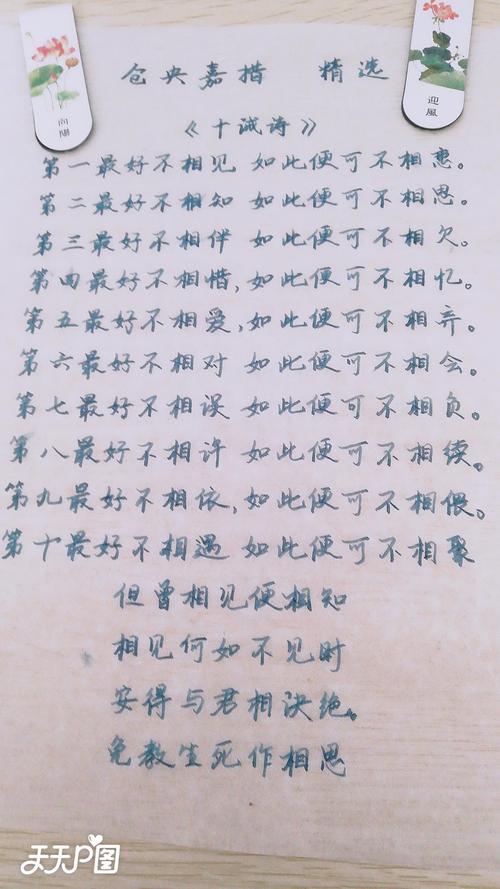 向陽
迎風
仓央嘉措 精选
《十诫诗》
第一最好不相见 如此便可不相惠。
第二最好不相知 如此便可不相思。
第三最好不相伴 如此便可不相欠。
第四最好不相惜,如此便可不相忆。
第五最好不相爱,如此便可不相弃。
第六最好不相对 如此便可不相会。
第七最好不相误 如此便可不相负。
第八最好不相许 如此便可不相续。
第九最好不相依,如此便可不相偎。
第十最好不相遇 如此便可不相聚
但曾相见便相知
相见何如不见时
安得与君相决绝。
免教生死作相思
天天P图